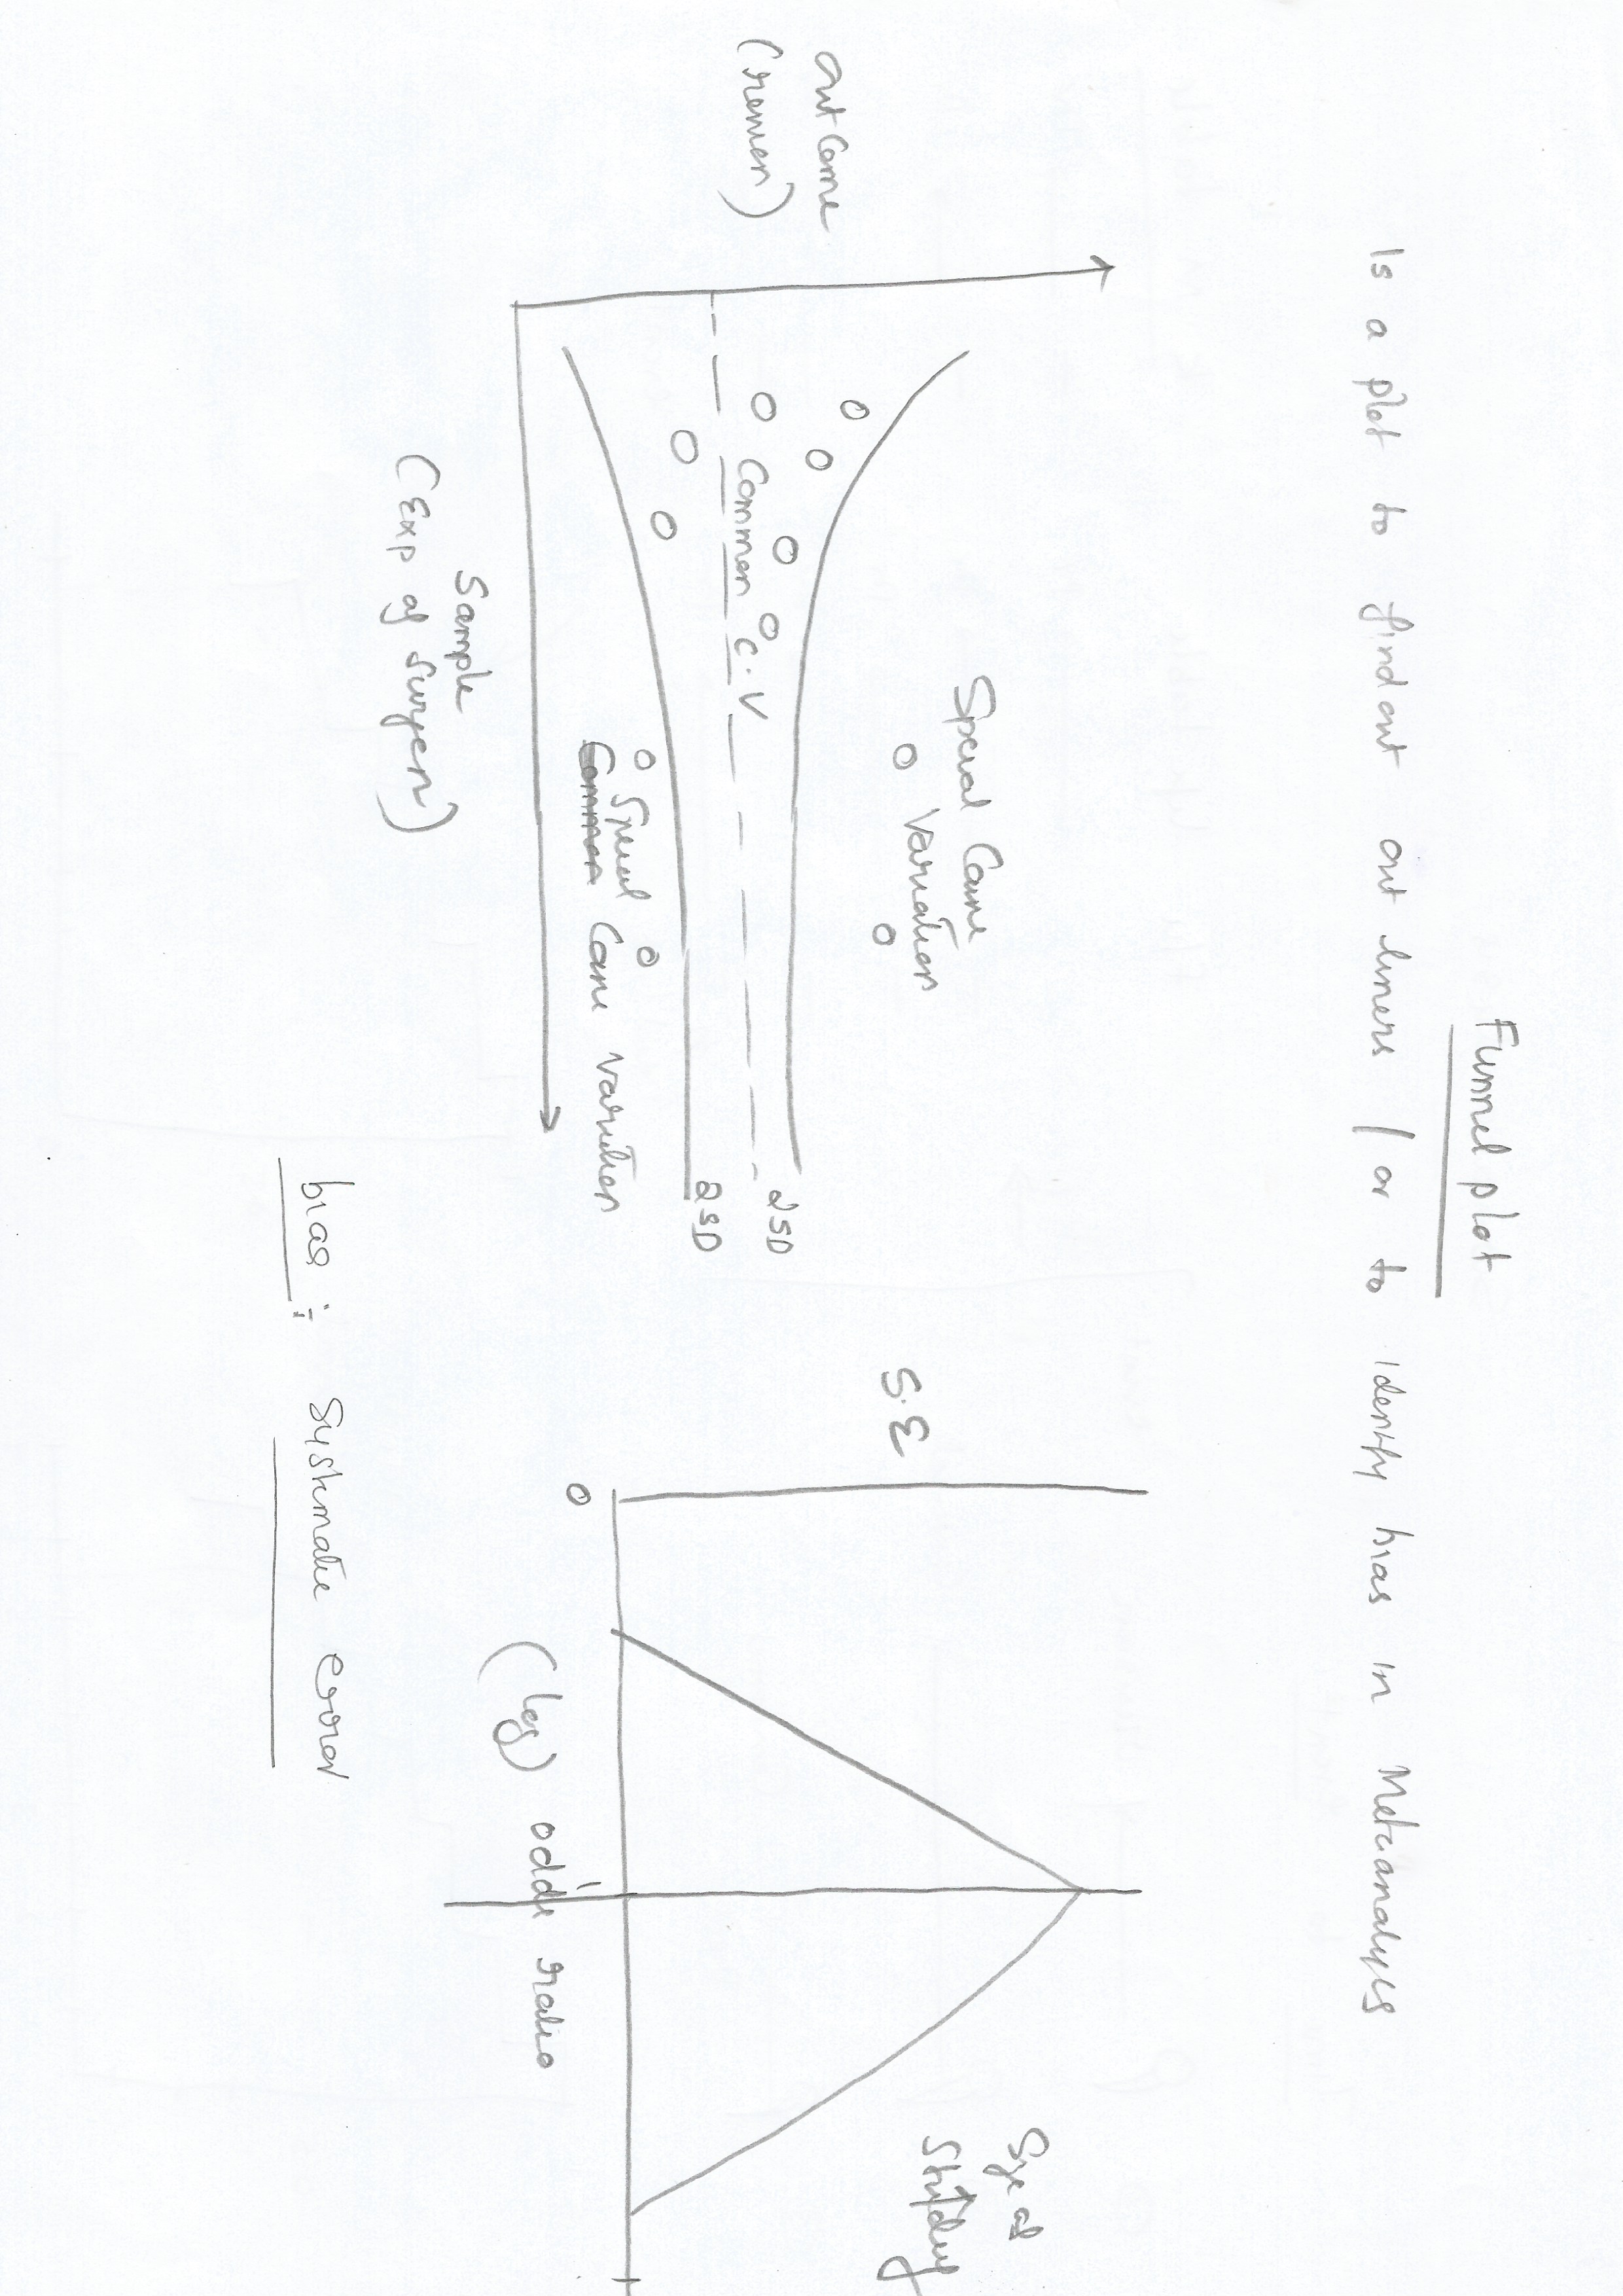 Funnel plot
Is a plot to find out out liners / or to identify bias in Metaanalysis
outcome
(
)
Special Cause
Variation
Common C.V
2SD
2SD
Special
Common Cause variation
Sample
(Exp of Surgeon)
S.E
0
1
(log) odds ratio
Size of
Study
bias :- Systematic error